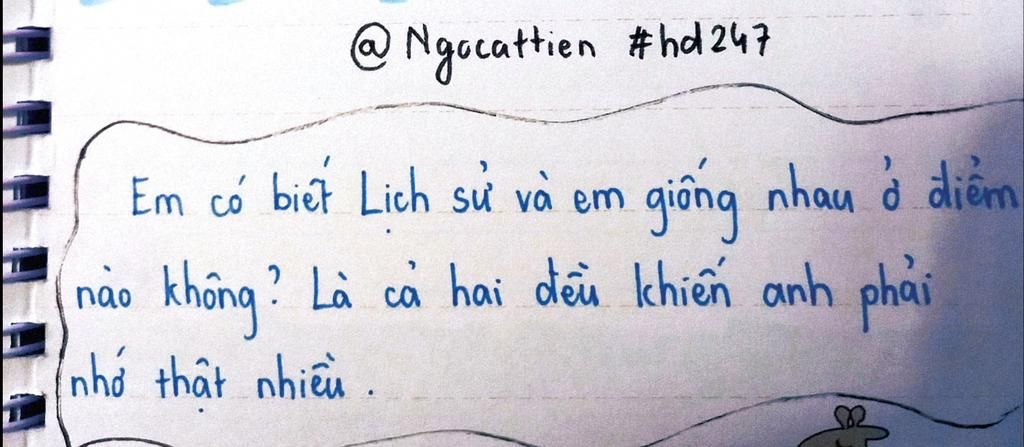 @Ngocattien #hd247
Em có biết Lịch sử và em giống nhau ở điểm
nào không? Là cả hai đều khiến anh phải
nhớ thật nhiều.